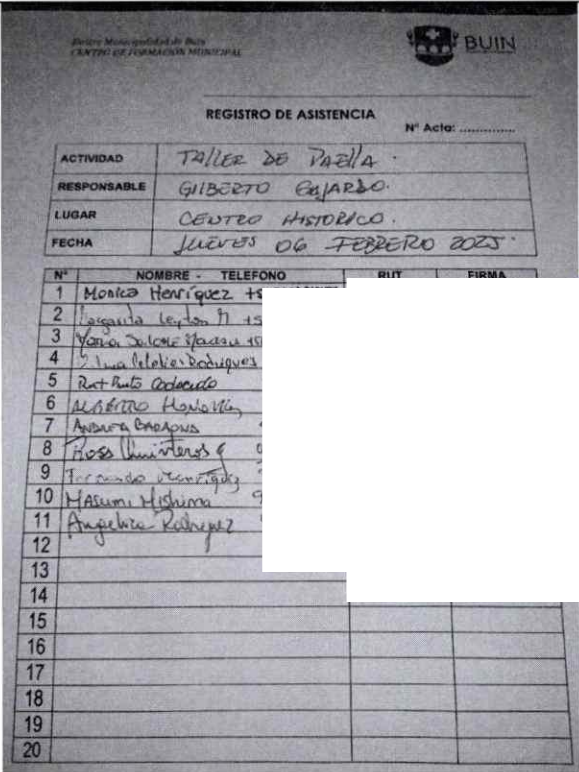 Ilustre Municipalidad de Buin
CENTRO DE FORMACIÓN MUNICIPAL
BUIN
REGISTRO DE ASISTENCIA
Nº Acta: ..............
ACTIVIDAD TALLER DE PAELLA.
RESPONSABLE GILBERTO GAJARDO.
LUGAR CENTRO HISTORICO.
FECHA JUEVES 06 FEBRERO 2025.
Nº NOMBRE - TELEFONO RUT FIRMA
1 Monica Henríquez +5
2 Margarita Leyton M +5
3
4 Rodriguez
5 Rut Pinto
6 ALBERTO
7 ANDREA BARAONA
8 Rosa Quinteros
9 Fernando Henríquez
10 MASUMI MISHIMA 9
11 Angelica
12
13
14
15
16
17
18
19
20